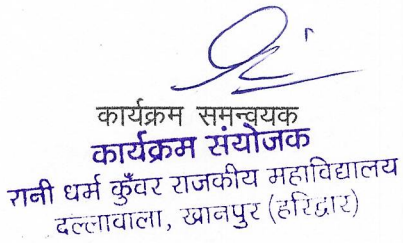 कार्यक्रम समन्वयक
कार्यक्रम संयोजक
रानी धर्म कुँवर राजकीय महाविद्यालय
दल्लावाला, खानपुर (हरिद्वार)